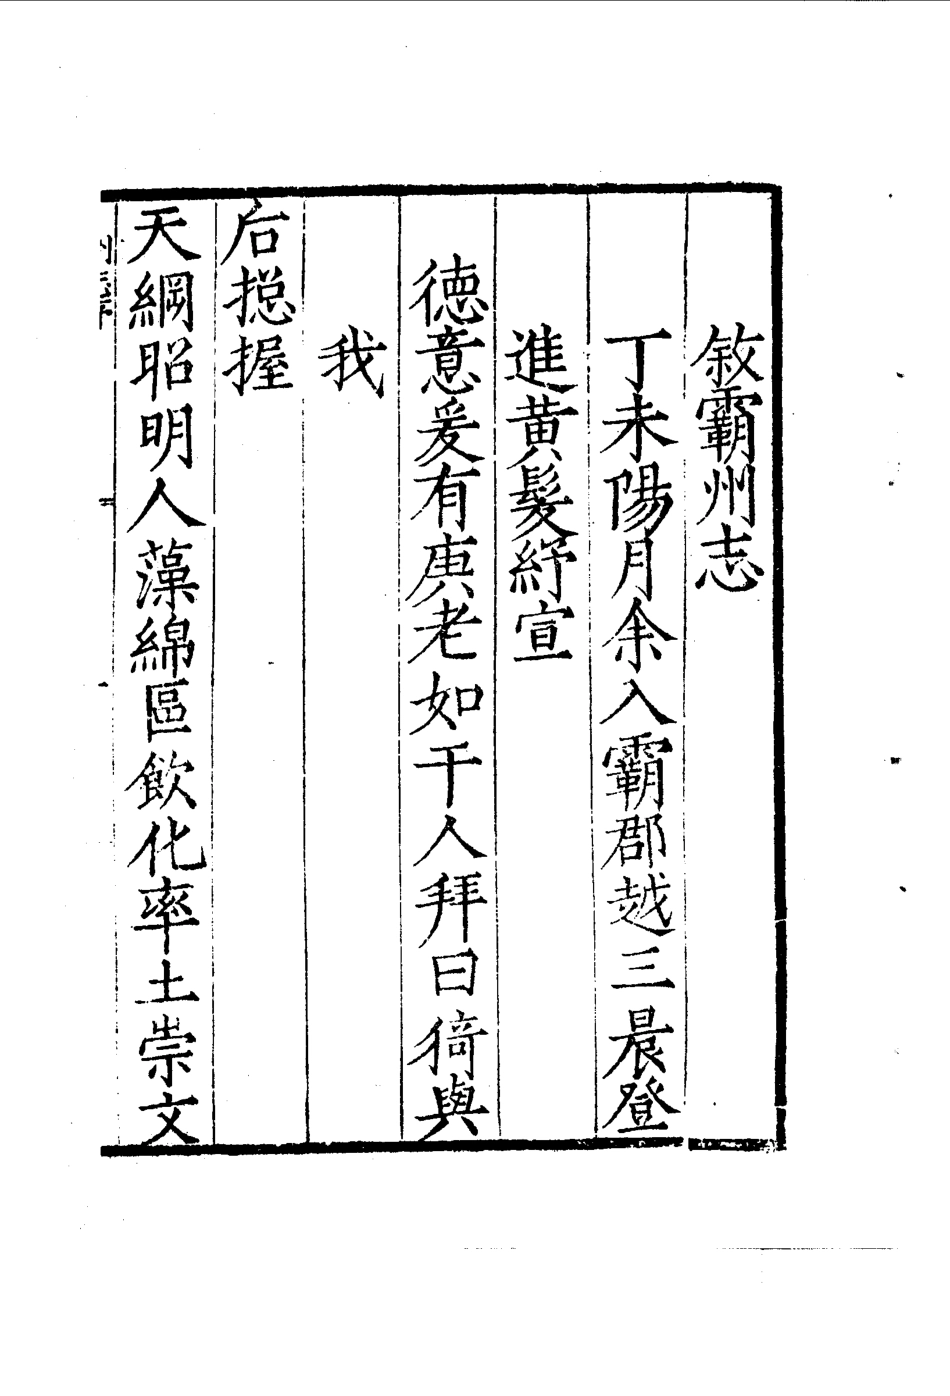 敘霸州志
丁未陽月余入霸郡越三晨登
進黃髮紓宣
德意爰有庚老如干人拜曰猗與
我
后摠握
天綱昭明人藻綿區飲化率土崇文